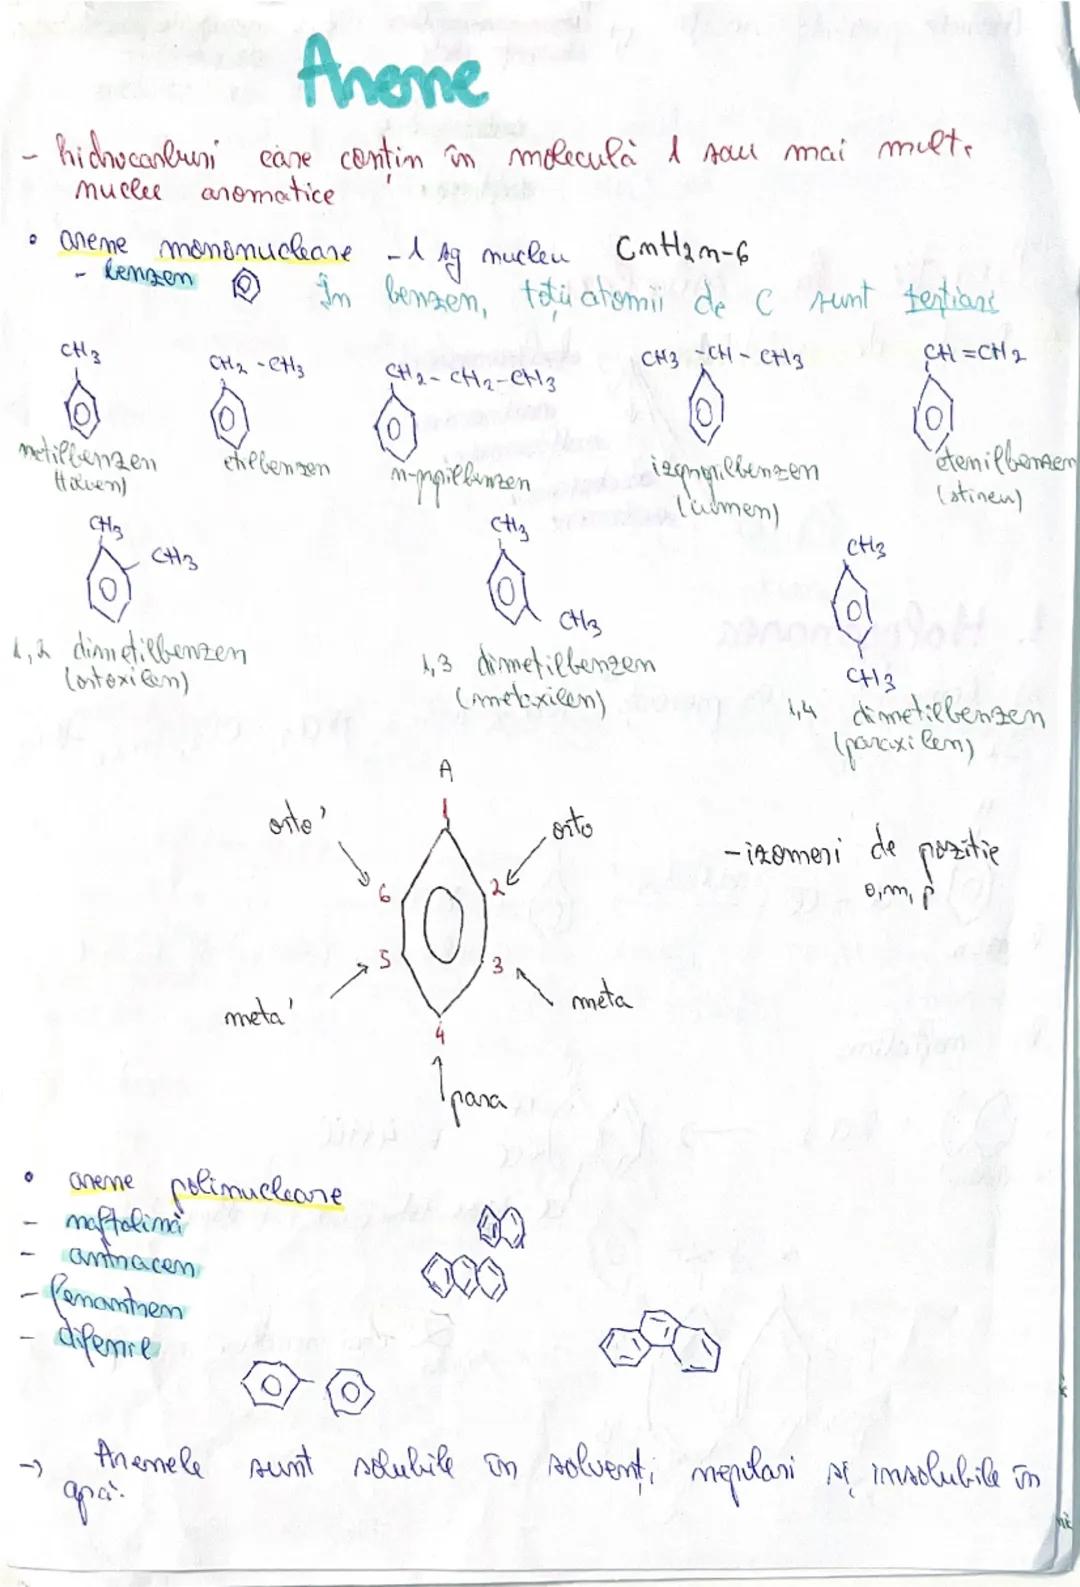 Arene
- hidrocarburi care conțin în moleculă 1 sau mai multe
nuclee aromatice
• arene mononucleare - 1 sg nucleu CmH2m-6
- benzen
În benzen, toți atomii de C sunt terțiari
CH3
CH2-CH3
CH2-CH2-CH3
CH3-CH-CH3
CH=CH2
metilbenzen
(toluen)
etilbenzen
n-propilbenzen
izopropilbenzen
(cumen)
etenilbenzen
(stiren)
CH3
CH3
CH3
CH3
CH3
CH3
1,2 dimetilbenzen
(ortoxilen)
1,3 dimetilbenzen
(metaxilen)
1,4 dimetilbenzen
(paraxilen)
A
1
orto'
orto
6
2
5
3
meta'
meta
4
para
- izomeri de poziție
o, m, p
• arene polinucleare
- naftalină
- antracen
- fenantren
- difenil
→ Arenele sunt solubile în solvenți nepolari și insolubile în
apă.